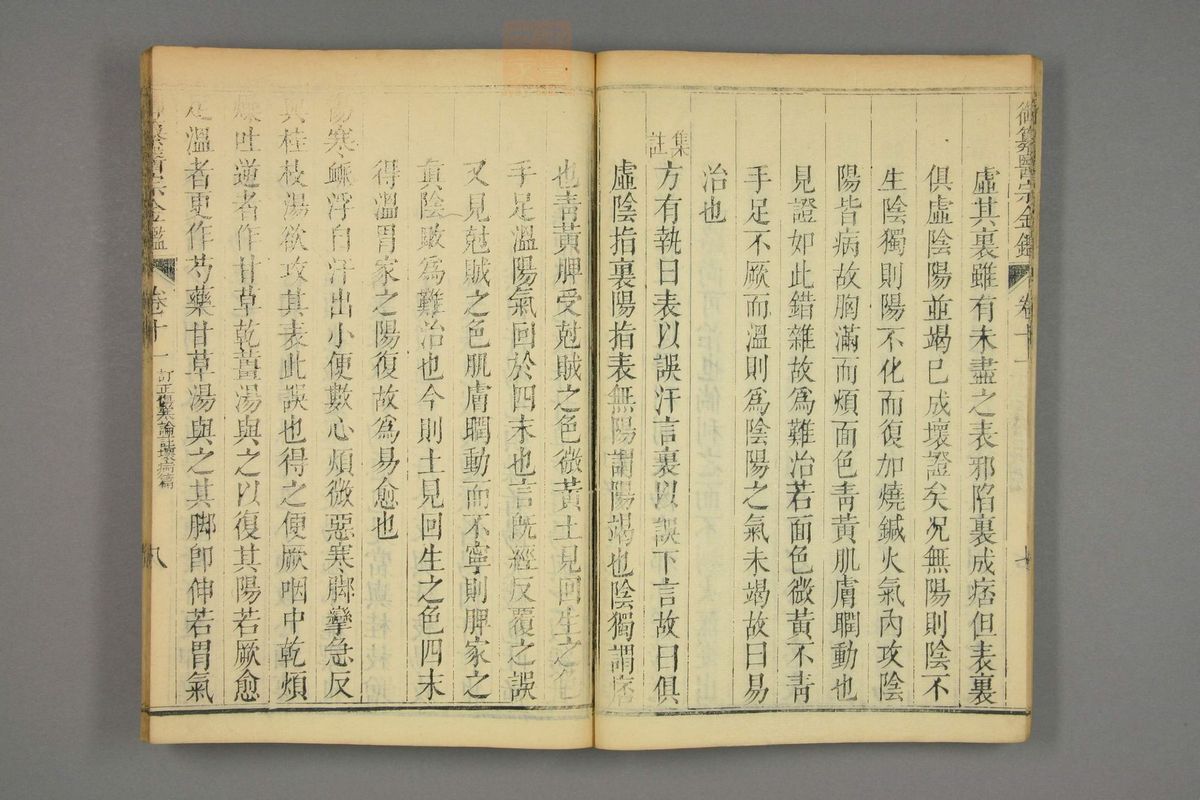 御纂醫宗金鑑 卷十一
虛其裏雖有未盡之表邪陷裏成痞但表裏
俱虛陰陽並竭已成壞證矣况無陽則陰不
生陰獨則陽不化而復加燒鍼火氣內攻陰
陽皆病故胸滿而煩面色靑黃肌膚瞤動也
見證如此錯雜故爲難治若面色微黃不靑
手足不厥而溫則爲陰陽之氣未竭故曰易
治也
集註
方有執曰表以誤汗言裏以誤下言故曰俱
虛陰指裏陽指表無陽謂陽竭也陰獨謂痞
也靑黃脾受尅賊之色微黃土見回生之色
手足溫陽氣回於四末也言旣經反覆之誤
又見尅賊之色肌膚瞤動而不寧則脾家之
眞陰敗爲難治也今則土見回生之色四末
得溫胃家之陽復故爲易愈也
傷寒脈浮自汗出小便數心煩微惡寒脚攣急反
與桂枝湯欲攻其表此誤也得之便厥咽中乾煩
燥吐逆者作甘草乾薑湯與之以復其陽若厥愈
足溫者更作芍藥甘草湯與之其脚卽伸若胃氣
御纂醫宗金鑑 卷十一 訂正傷寒論註壞病篇 八